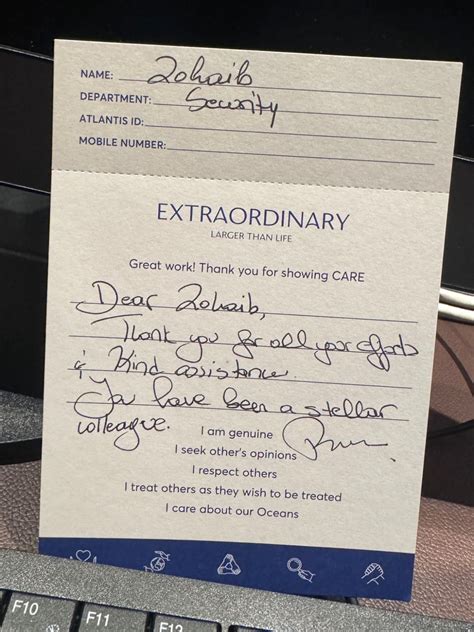 NAME: Zohaib
DEPARTMENT: Security
ATLANTIS ID:
MOBILE NUMBER:
EXTRAORDINARY
LARGER THAN LIFE
Great work! Thank you for showing CARE
Dear Zohaib,
Thank you for all your efforts
& Kind assistance.
You have been a stellar
colleague.
I am genuine
I seek other's opinions
I respect others
I treat others as they wish to be treated
I care about our Oceans
F10
F11
F12